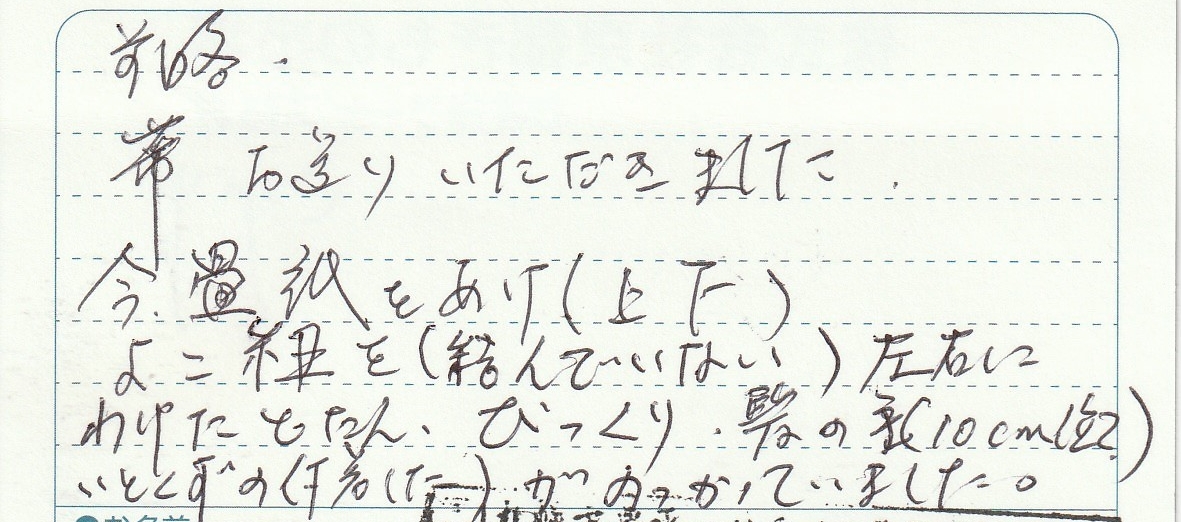 前略.
帯 お送りいただきました.
今、畳紙をあけ(上下)
よこ紐を(結んでいない)左右に
わけたとたん、びっくり.
の(10cm位)
いとくずの() がのっかっていました。
お名前